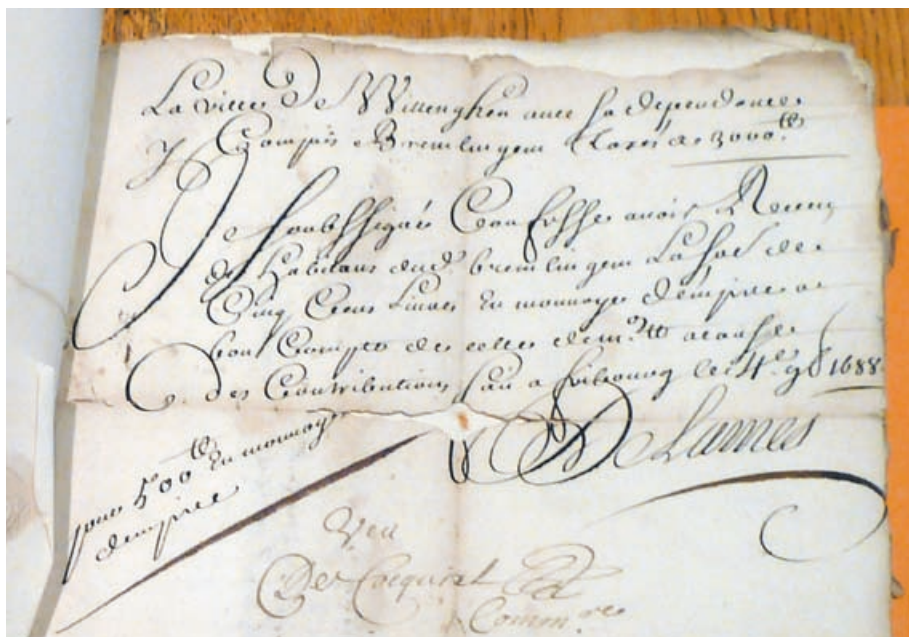 La ville De Willenghen avec sa dependance
y Compris Bremlingem taxée a 3000 tt
Je soubssigné Confesse avoir Receu
des habitans dud. bremlingem La so.e de
Cinq Cens Livres En monnoye dempire a
bon Compte de celle de m. tt a cause
des Contributions fait a fribourg le 4.e 9b 1688
Delames
pour 500 tt En monnoye
dempire
Veu
De Cocquiel
Comm.re